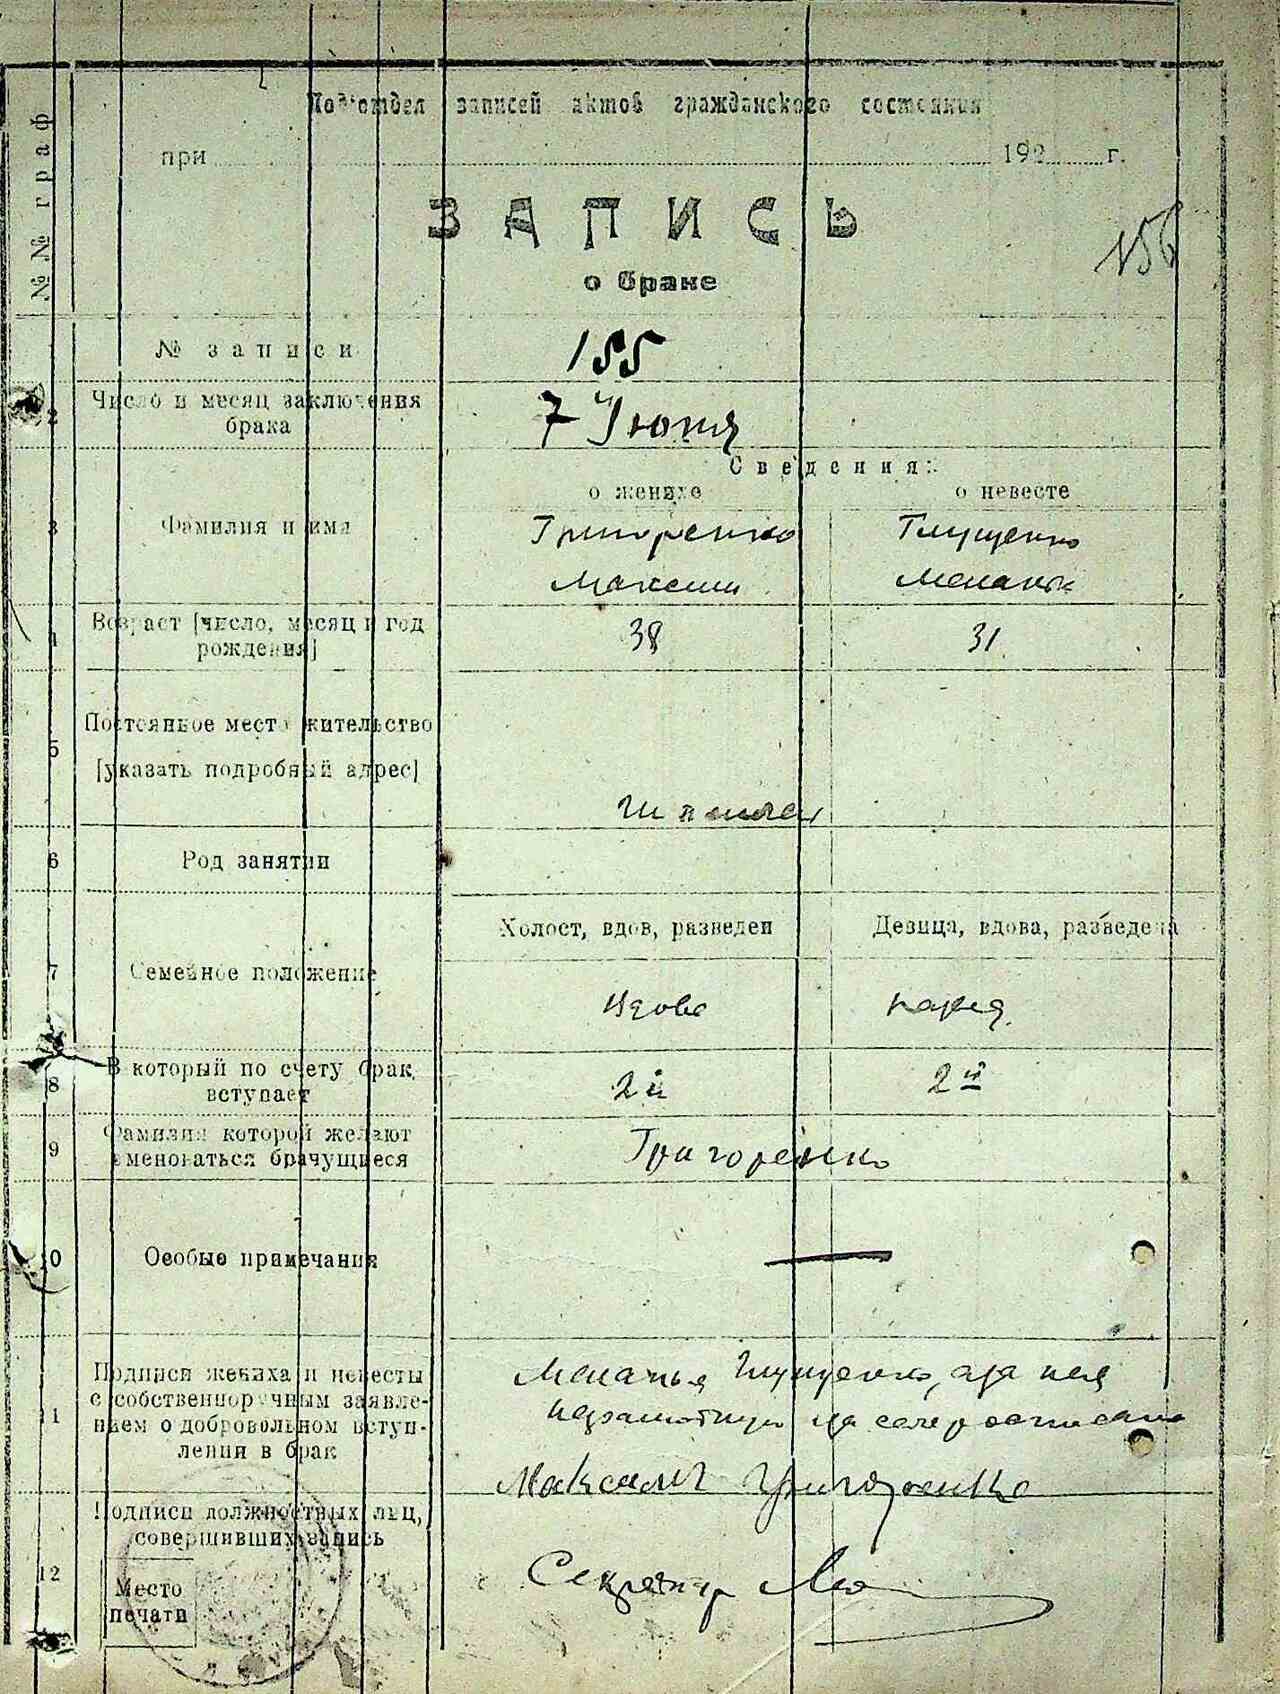 № № граф
Под'отдел записей актов гражданского состояния
при 192 г.
ЗАПИСЬ
о браке
156
№ записи 155
2 Число и месяц заключения
брака
7 Июня
Сведения:
о женихе о невесте
3 Фамилия и имя
Григоренко Глущенко
Максим Меланья
4 Возраст [число, месяц и год
рождения]
38 31
5 Постоянное место жительство
[указать подробный адрес]
6 Род занятий
Холост, вдов, разведен Девица, вдова, разведена
7 Семейное положение
вдове
8 В который по счету брак
вступает
2й 2й
9 Фамилия которой желают
именоваться брачущиеся
Григоренко
10 Особые примечания
11 Подписи жениха и невесты
с собственноручным заявле-
нием о добровольном вступ-
лении в брак
Меланья Глущенко, а за нея
неграмотную
Максимъ Григоренко
12 Подписи должностных лиц,
совершивших запись
Место
печати
Секретар